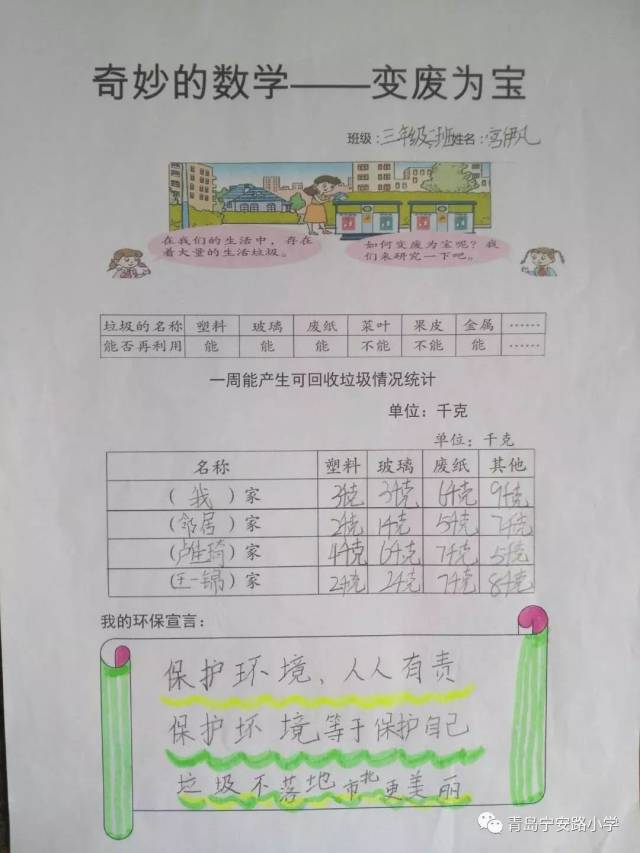 奇妙的数学——变废为宝
班级：三年级三班姓名：宫伊凡
在我们的生活中，存在着大量的生活垃圾。
如何变废为宝呢？我们来研究一下吧。
垃圾的名称 塑料 玻璃 废纸 菜叶 果皮 金属 ……
能否再利用 能 能 能 不能 不能 能 ……
一周能产生可回收垃圾情况统计
单位：千克
单位：千克
名称 塑料 玻璃 废纸 其他
（我）家 3千克 3千克 6千克 9千克
（邻居）家 2千克 1千克 5千克 7千克
（卢佳琦）家 4千克 6千克 7千克 5千克
（王一锦）家 2千克 2千克 7千克 8千克
我的环保宣言：
保护环境、人人有责
保护环境等于保护自己
垃圾不落地市北更美丽
青岛宁安路小学